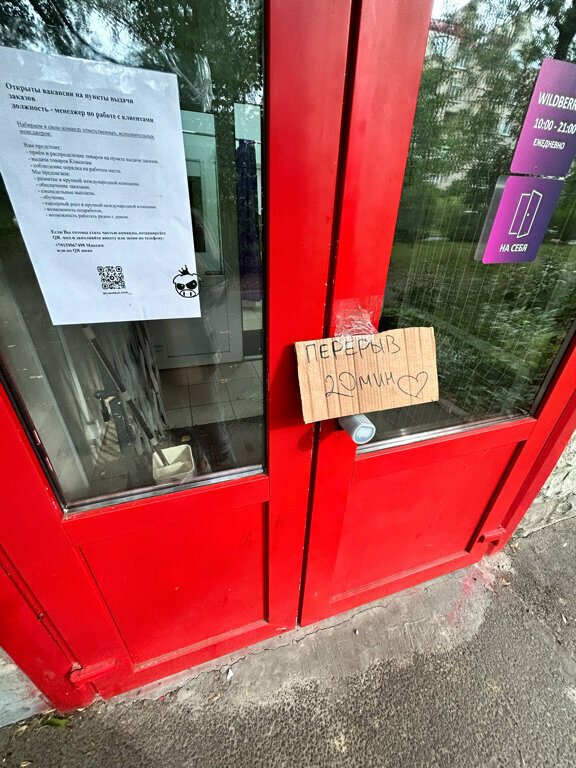 Открыты вакансии на пункты выдачи
заказов
должность - менеджер по работе с клиентами
Набираем в свою команду ответственных, исполнительных
менеджеров:
Вам предстоит:
- приём и распределение товаров на пункте выдачи заказов
- выдача товаров Клиентам
- соблюдение порядка на рабочем месте.
Мы предлагаем:
- развитие в крупной международной компании.
- обеспечение заказами.
- еженедельные выплаты.
- обучение.
- карьерный рост в крупной международной компании
- возможность подработок.
- возможность работать рядом с домом.
Если Вы готовы стать частью команды, отсканируйте
QR -код и заполните анкету или звоните по телефону:
Максим
или по QR ниже
ПЕРЕРЫВ
20 МИН
WILDBERR
10:00 - 21:00
ЕЖЕДНЕВНО
НА СЕБЯ